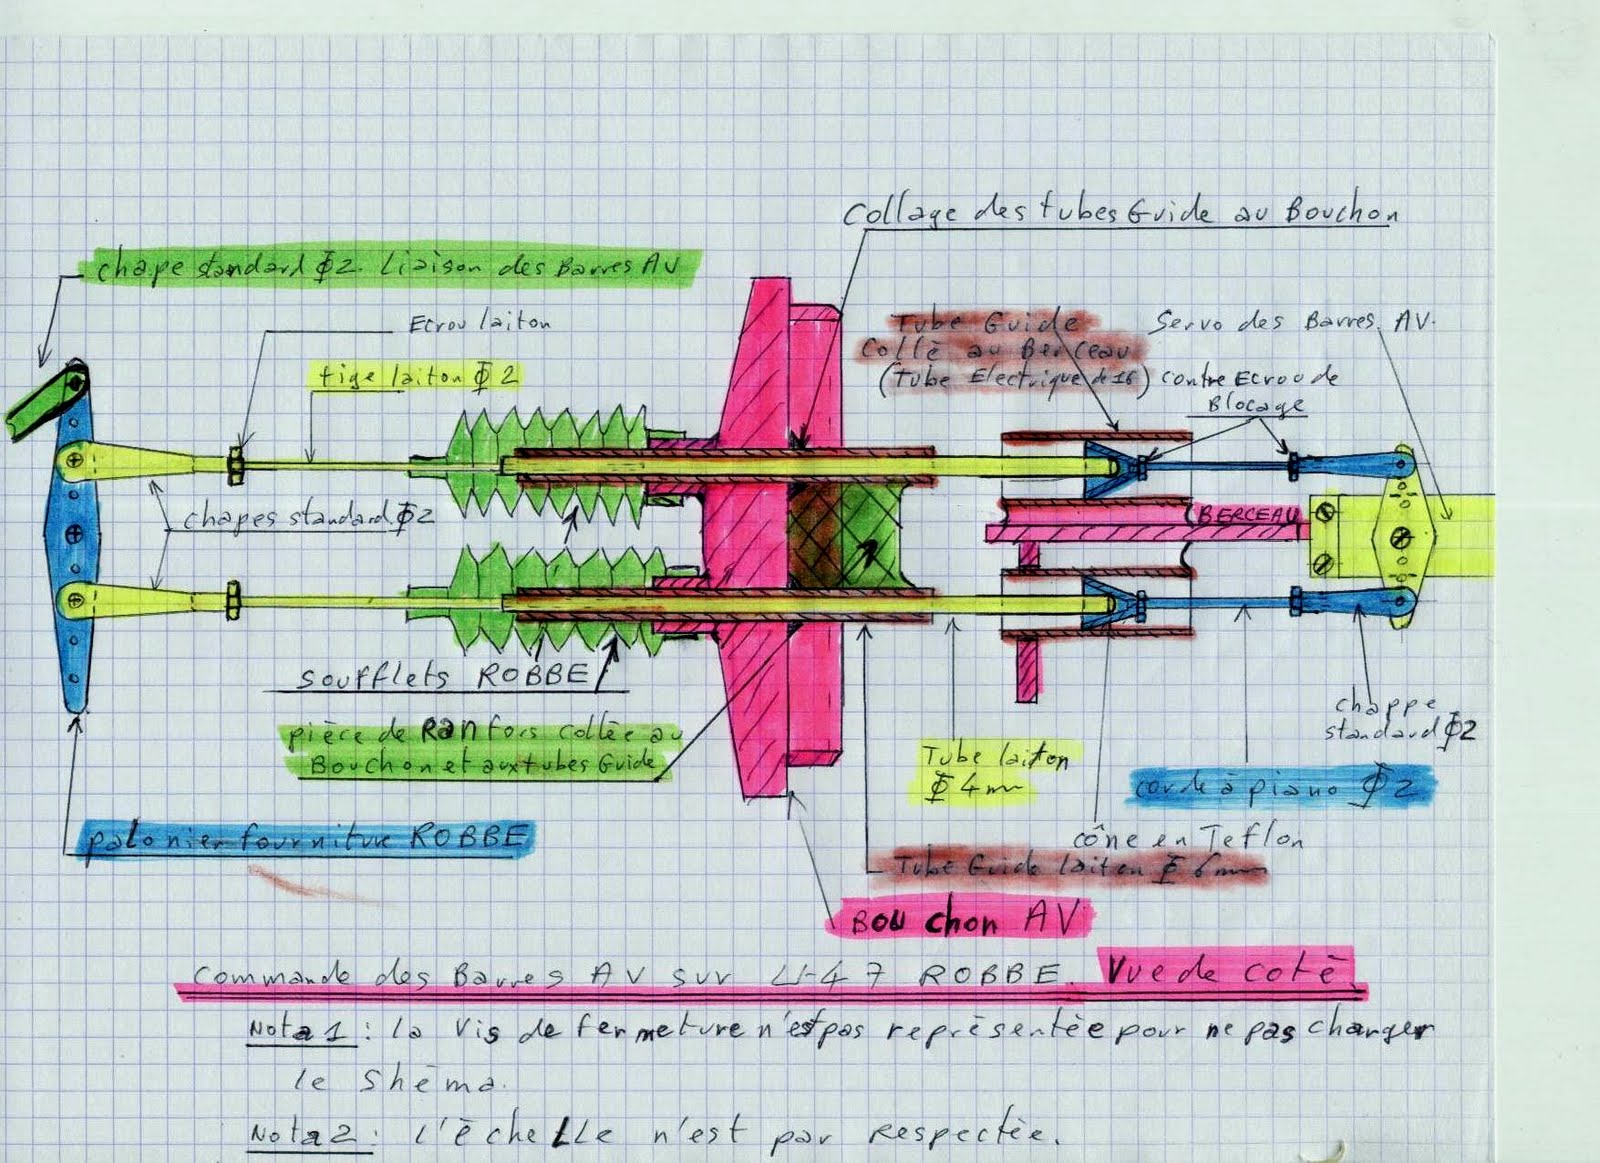 Collage des tubes Guide au Bouchon
chape standard Φ2. Liaison des Barres AV
Ecrou laiton
Tube Guide
Collé au Berceau
(Tube Electrique de 16)
Servo des Barres AV.
tige laiton Φ 2
contre Ecrou de
Blocage
chapes standard Φ2
BERCEAU
soufflets ROBBE
pièce de Ranfors collée au
Bouchon et aux tubes Guide
chappe
standard Φ2
Tube laiton
Φ 4mm
corde à piano Φ 2
palonier fourniture ROBBE
cône en Teflon
Tube Guide laiton Φ 6mm
Bouchon AV
Commande des Barres AV sur U-47 ROBBE. Vue de coté
Nota 1 : la vis de fermeture n'est pas représentée pour ne pas charger
le shéma.
Nota 2 : l'échelle n'est par respectée.